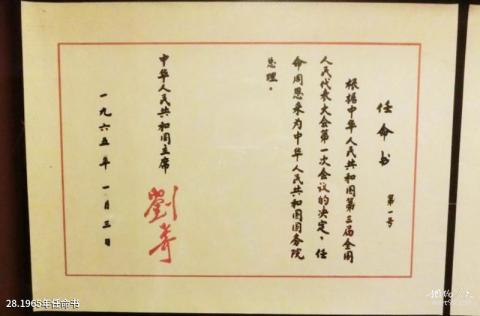 任命书
第一号
根据中华人民共和国第三届全国
人民代表大会第一次会议的决定，任
命周恩来为中华人民共和国国务院
总理。
中华人民共和国主席
劉少奇
一九六五年 一月三日
28.1965年任命书